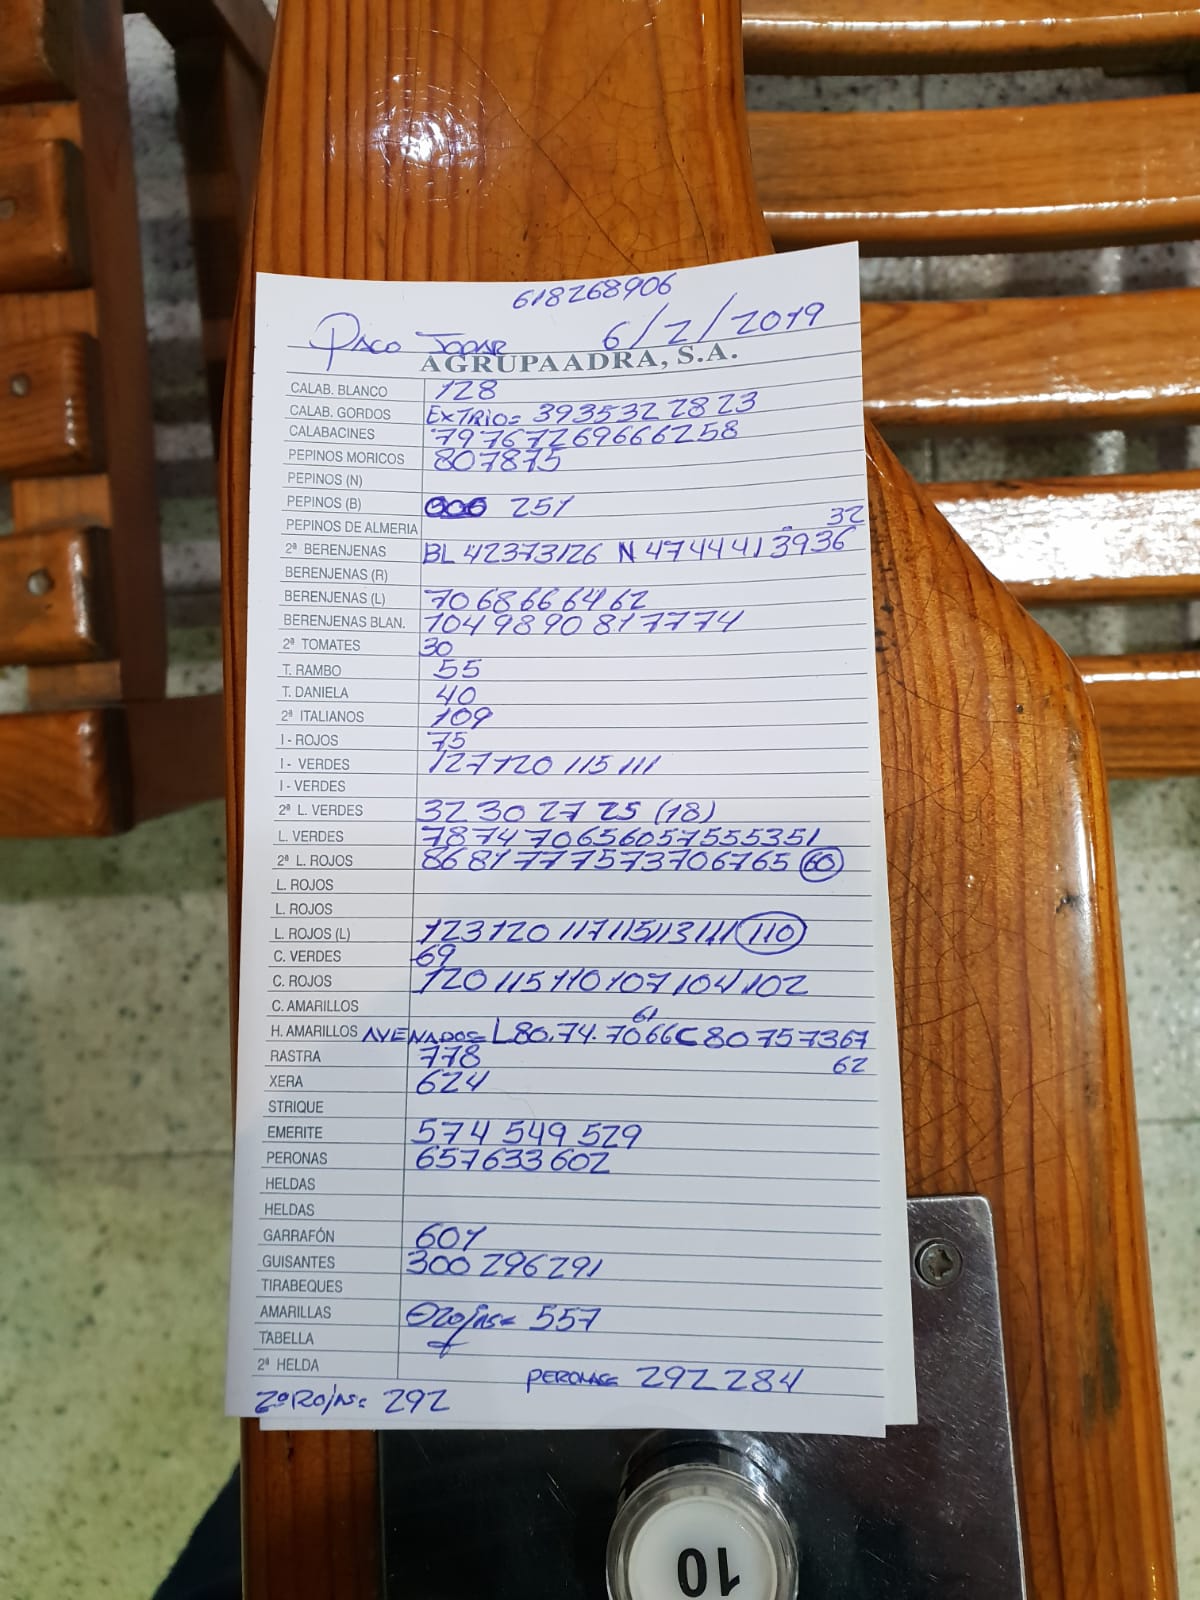 618268906
PACO JODAR 6/2/2019
AGRUPAADRA, S.A.
CALAB. BLANCO 128
CALAB. GORDOS EXTRIO= 3935322823
CALABACINES 79767269666258
PEPINOS MORICOS 807875
PEPINOS (N)
PEPINOS (B) 251
PEPINOS DE ALMERIA 32
2ª BERENJENAS BL 42373126 N 4744413936
BERENJENAS (R)
BERENJENAS (L) 7068666462
BERENJENAS BLAN. 1049890817774
2ª TOMATES 30
T. RAMBO 55
T. DANIELA 40
2ª ITALIANOS 109
I - ROJOS 75
I - VERDES 127120 115 111
I - VERDES
2ª L. VERDES 32 30 27 25 (18)
L. VERDES 787470656057555351
2ª L. ROJOS 8681777573706765 60
L. ROJOS
L. ROJOS
L. ROJOS (L) 123120 117115113111 110
C. VERDES 69
C. ROJOS 120115110107104102
C. AMARILLOS 61
H. AMARILLOS AVENADOS= L80.74.7066C80757367
RASTRA 778 62
XERA 624
STRIQUE
EMERITE 574 549 529
PERONAS 657633602
HELDAS
HELDAS
GARRAFÓN 601
GUISANTES 300 296291
TIRABEQUES
AMARILLAS = 557
TABELLA
2ª HELDA PERONAS= 292 284
2ª ROJAS= 292
10